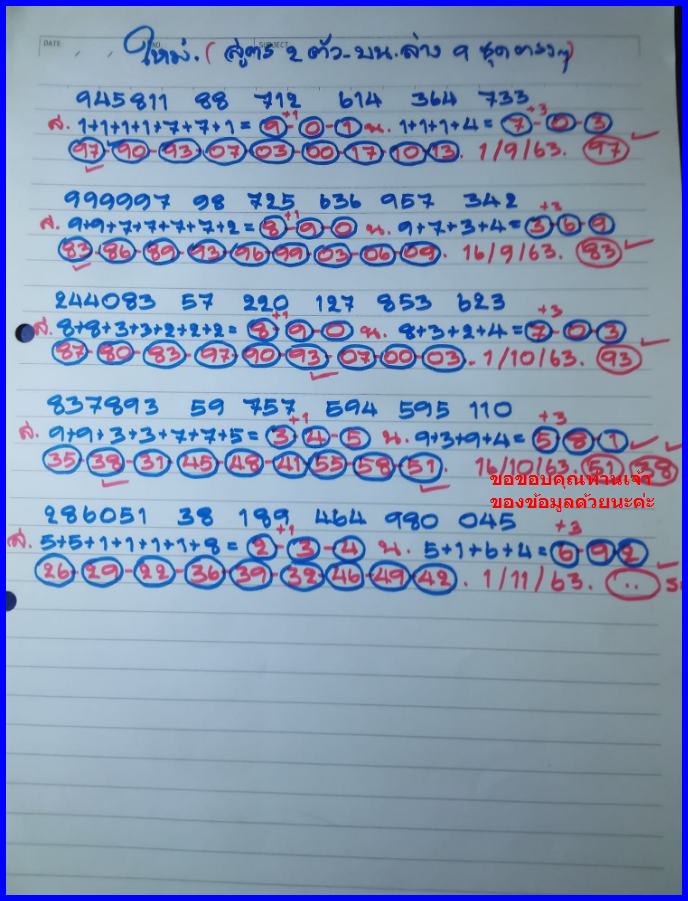 DATE NO SUBJECT
ใหม่. ( สูตร 2 ตัว-บน.ล่าง 9 ชุดตรงๆ)
945811 88 712 614 364 733
ส. 1+1+1+1+7+7+1= 9-0-1 +1 น. 1+1+1+4= 7-0-3 +3
97-90-93-07-03-00-17-10-13. 1/9/63. 97
999997 98 725 636 957 342
ส. 9+9+7+7+7+7+2= 8-9-0 +1 น. 9+7+3+4= 3-6-9 +3
83-86-89-93-96-99-03-06-09. 16/9/63. 83
244083 57 220 127 853 623
ส. 8+8+3+3+2+2+2= 8-9-0 +1 น. 8+3+2+4= 7-0-3 +3
87-80-83-97-90-93-07-00-03. 1/10/63. 93
837893 59 757 594 595 110
ส. 9+9+3+3+7+7+5= 3-4-5 +1 น. 9+3+9+4= 5-8-1 +3
35-38-31-45-48-41-55-58-51. 16/10/63. 51 38
ขอขอบคุณท่านเจ้า
ของข้อมูลด้วยนะค่ะ
286051 38 189 464 980 045
ส. 5+5+1+1+1+1+8= 2-3-4 +1 น. 5+1+6+4= 6-9-2 +3
26-29-22-36-39-32-46-49-42. 1/11/63. ..